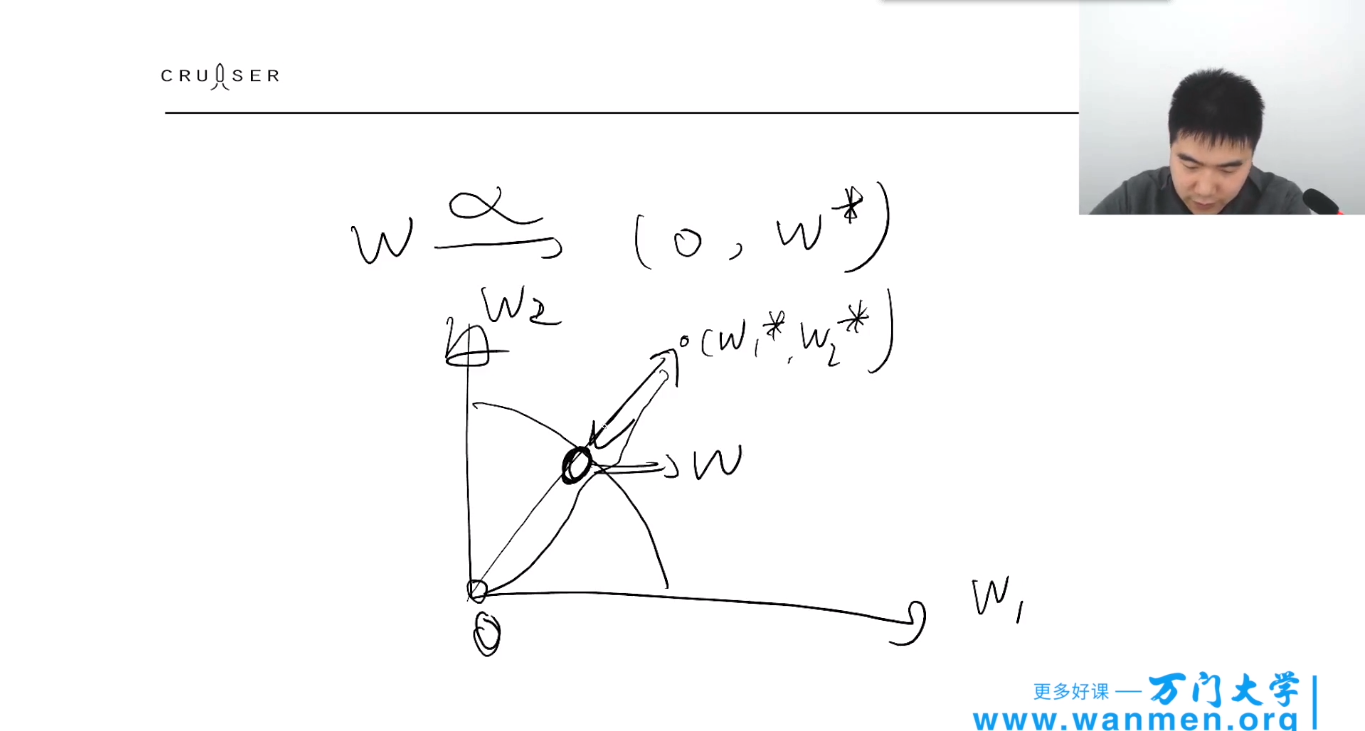 CRUISER
W α → (0, W*)
W2
(W1*, W2*)
W
0
W1
更多好课 — 万门大学
www.wanmen.org